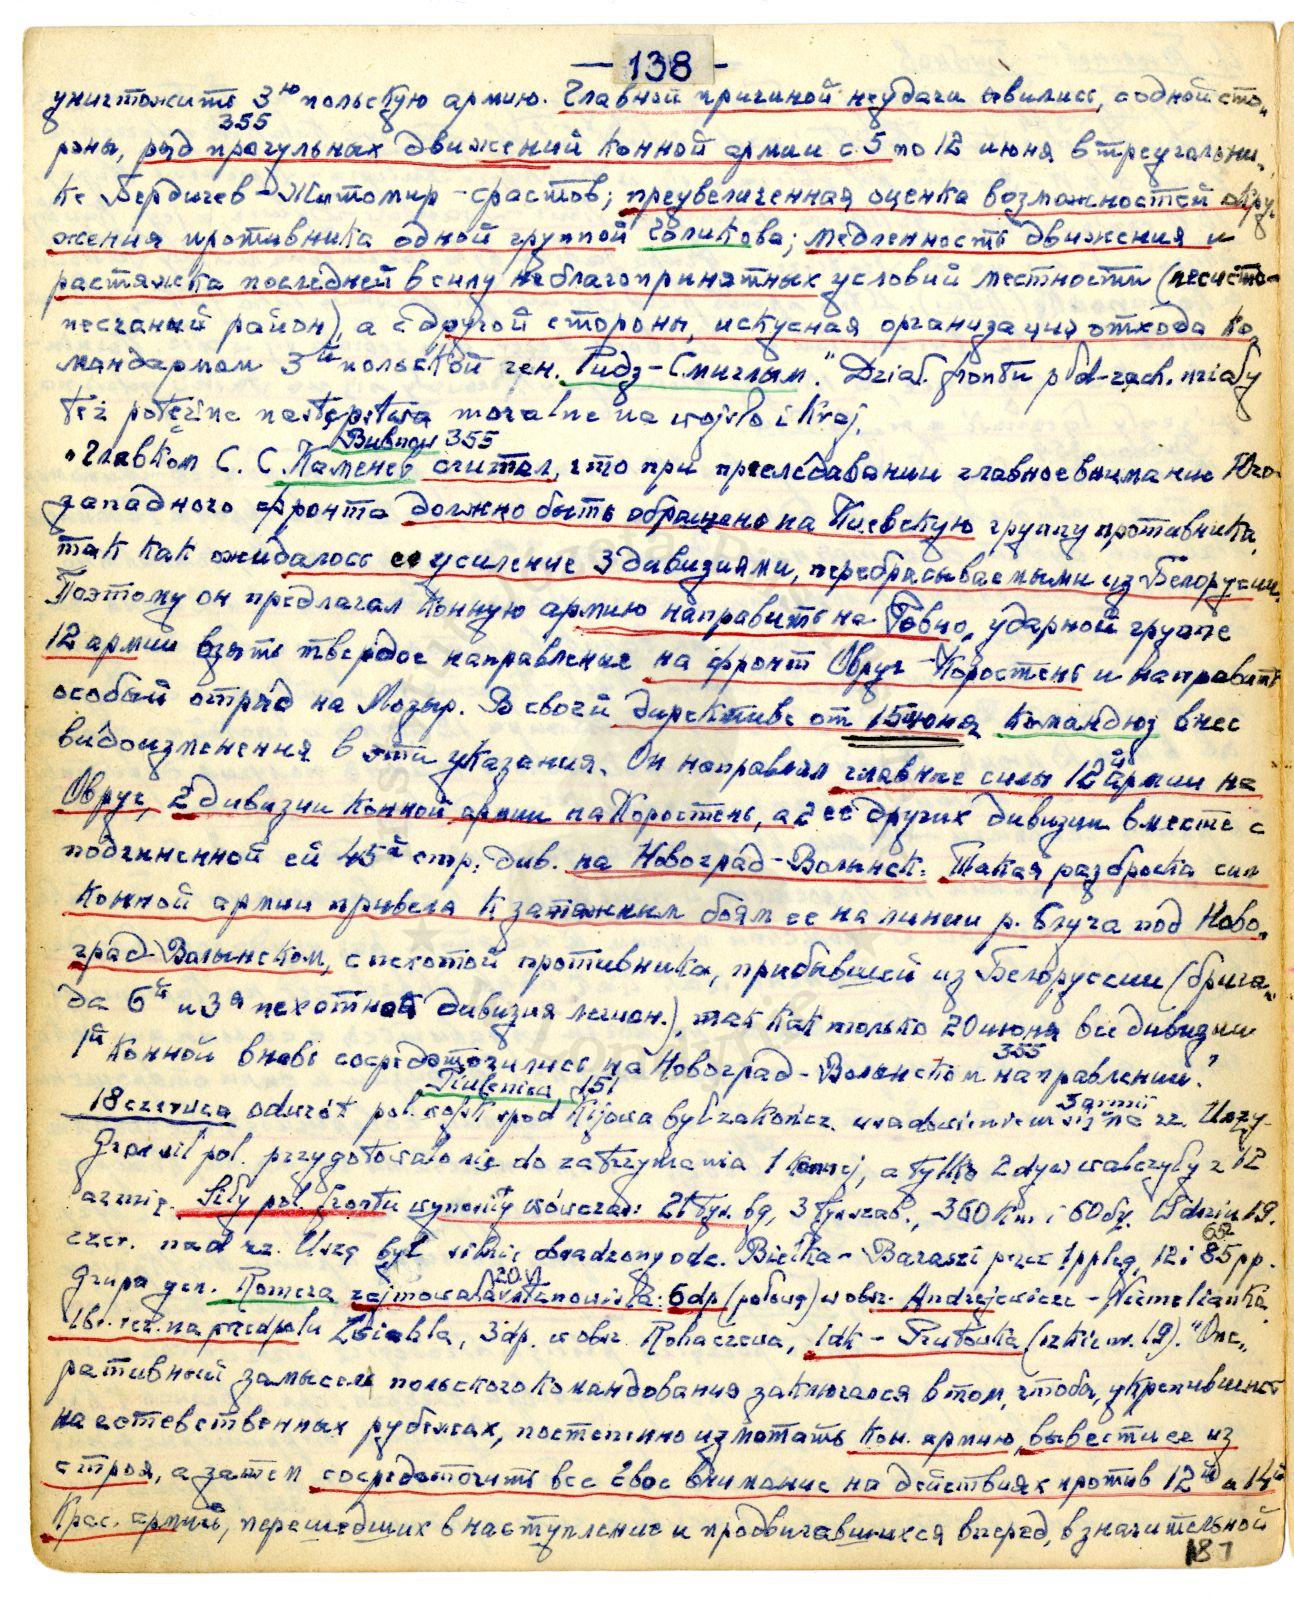 — 138 —
уничтожить 3ю польскую армию. Главной причиной неудачи явились, с одной сто„
355
роны, ряд прогульных движений конной армии с 5 по 12 июня в треугольни„
ке Бердичев – Житомир – Фастов; преувеличенная оценка возможностей окру„
жения противника одной группой Голикова; медленность движения и
растяжка последней в силу неблагоприятных условий местности (лесисто–
песчаный район), а с другой стороны, искусная организация отхода ко„
мандармом 3й польской ген. Ридз–Смиглым." Dział. frontu płd–zach. miały
też potężne następstwa moralne na wojsko i kraj.
355
„Главком С. С. Каменев считал, что при преследовании главное внимание Юго–
западного фронта должно быть обращено на Киевскую группу противника,
так как ожидалось ее усиление 3 дивизиями, перебрасываемыми из Белоруссии.
Поэтому он предлагал конную армию направить на Ровно, ударной группе
12 армии взять твердое направление на фронт Овруч – Коростень и направить
особый отряд на Мозырь. В своей директиве от 15 июня командюз внес
видоизменения в эти указания. Он направлял главные силы 12й армии на
Овруч, 2 дивизии конной армии на Коростень, а 2 ее других дивизии вместе с
подчиненной ей 45й стр. див. на Новоград–Волынск. Такая разброска сил
конной армии привела к затяжным боям ее на линии р. Случа под Ново„
град–Волынском, с пехотой противника, прибывшей из Белоруссии (брига„
да 6й и 3я пехотная дивизия легион.), так как только 20 июня все дивизии
1й конной вновь сосредоточились на Новоград–Волынском направлении."
355
151
18 czerwca odwrót pol. wojsk spod Kijowa był zakończ. usadowieniem się 3 armii na rz. Uszy.
Gros sił pol. przygotowało się do zatrzymania 1 konnej, a tylko 2 dyw walczyły z 12
armią. Siły pol. frontu wynosiły wówczas: 21 tys. bg, 3 tys. szab., 360 km i 60 dz. W dniu 19.
czer. nad rz. Uszą był silnie obsadzony odc. Białka – Barasze przez 1 ppleg, 12 i 85 pp.
Grupa gen. Romera zajmowała 20 VI stanowiska: 6dp (połowa) w obr. Andrzejewicze – Niemelianka,
1 br. rez. na przedpolu Zwiahla, 3dp. w obr. Rohaczewa, 1dk – Prutówka (szkic nr. 19). "Опе„
ративный замысел польского командования заключался в том, чтобы, укрепившись
на естественных рубежах, постепенно измотать кон. армию, вывести ее из
строя, а затем сосредоточить все свое внимание на действиях против 12й и 14й
Крас. армий, перешедших в наступление и продвигавшихся вперед, в значительной
187